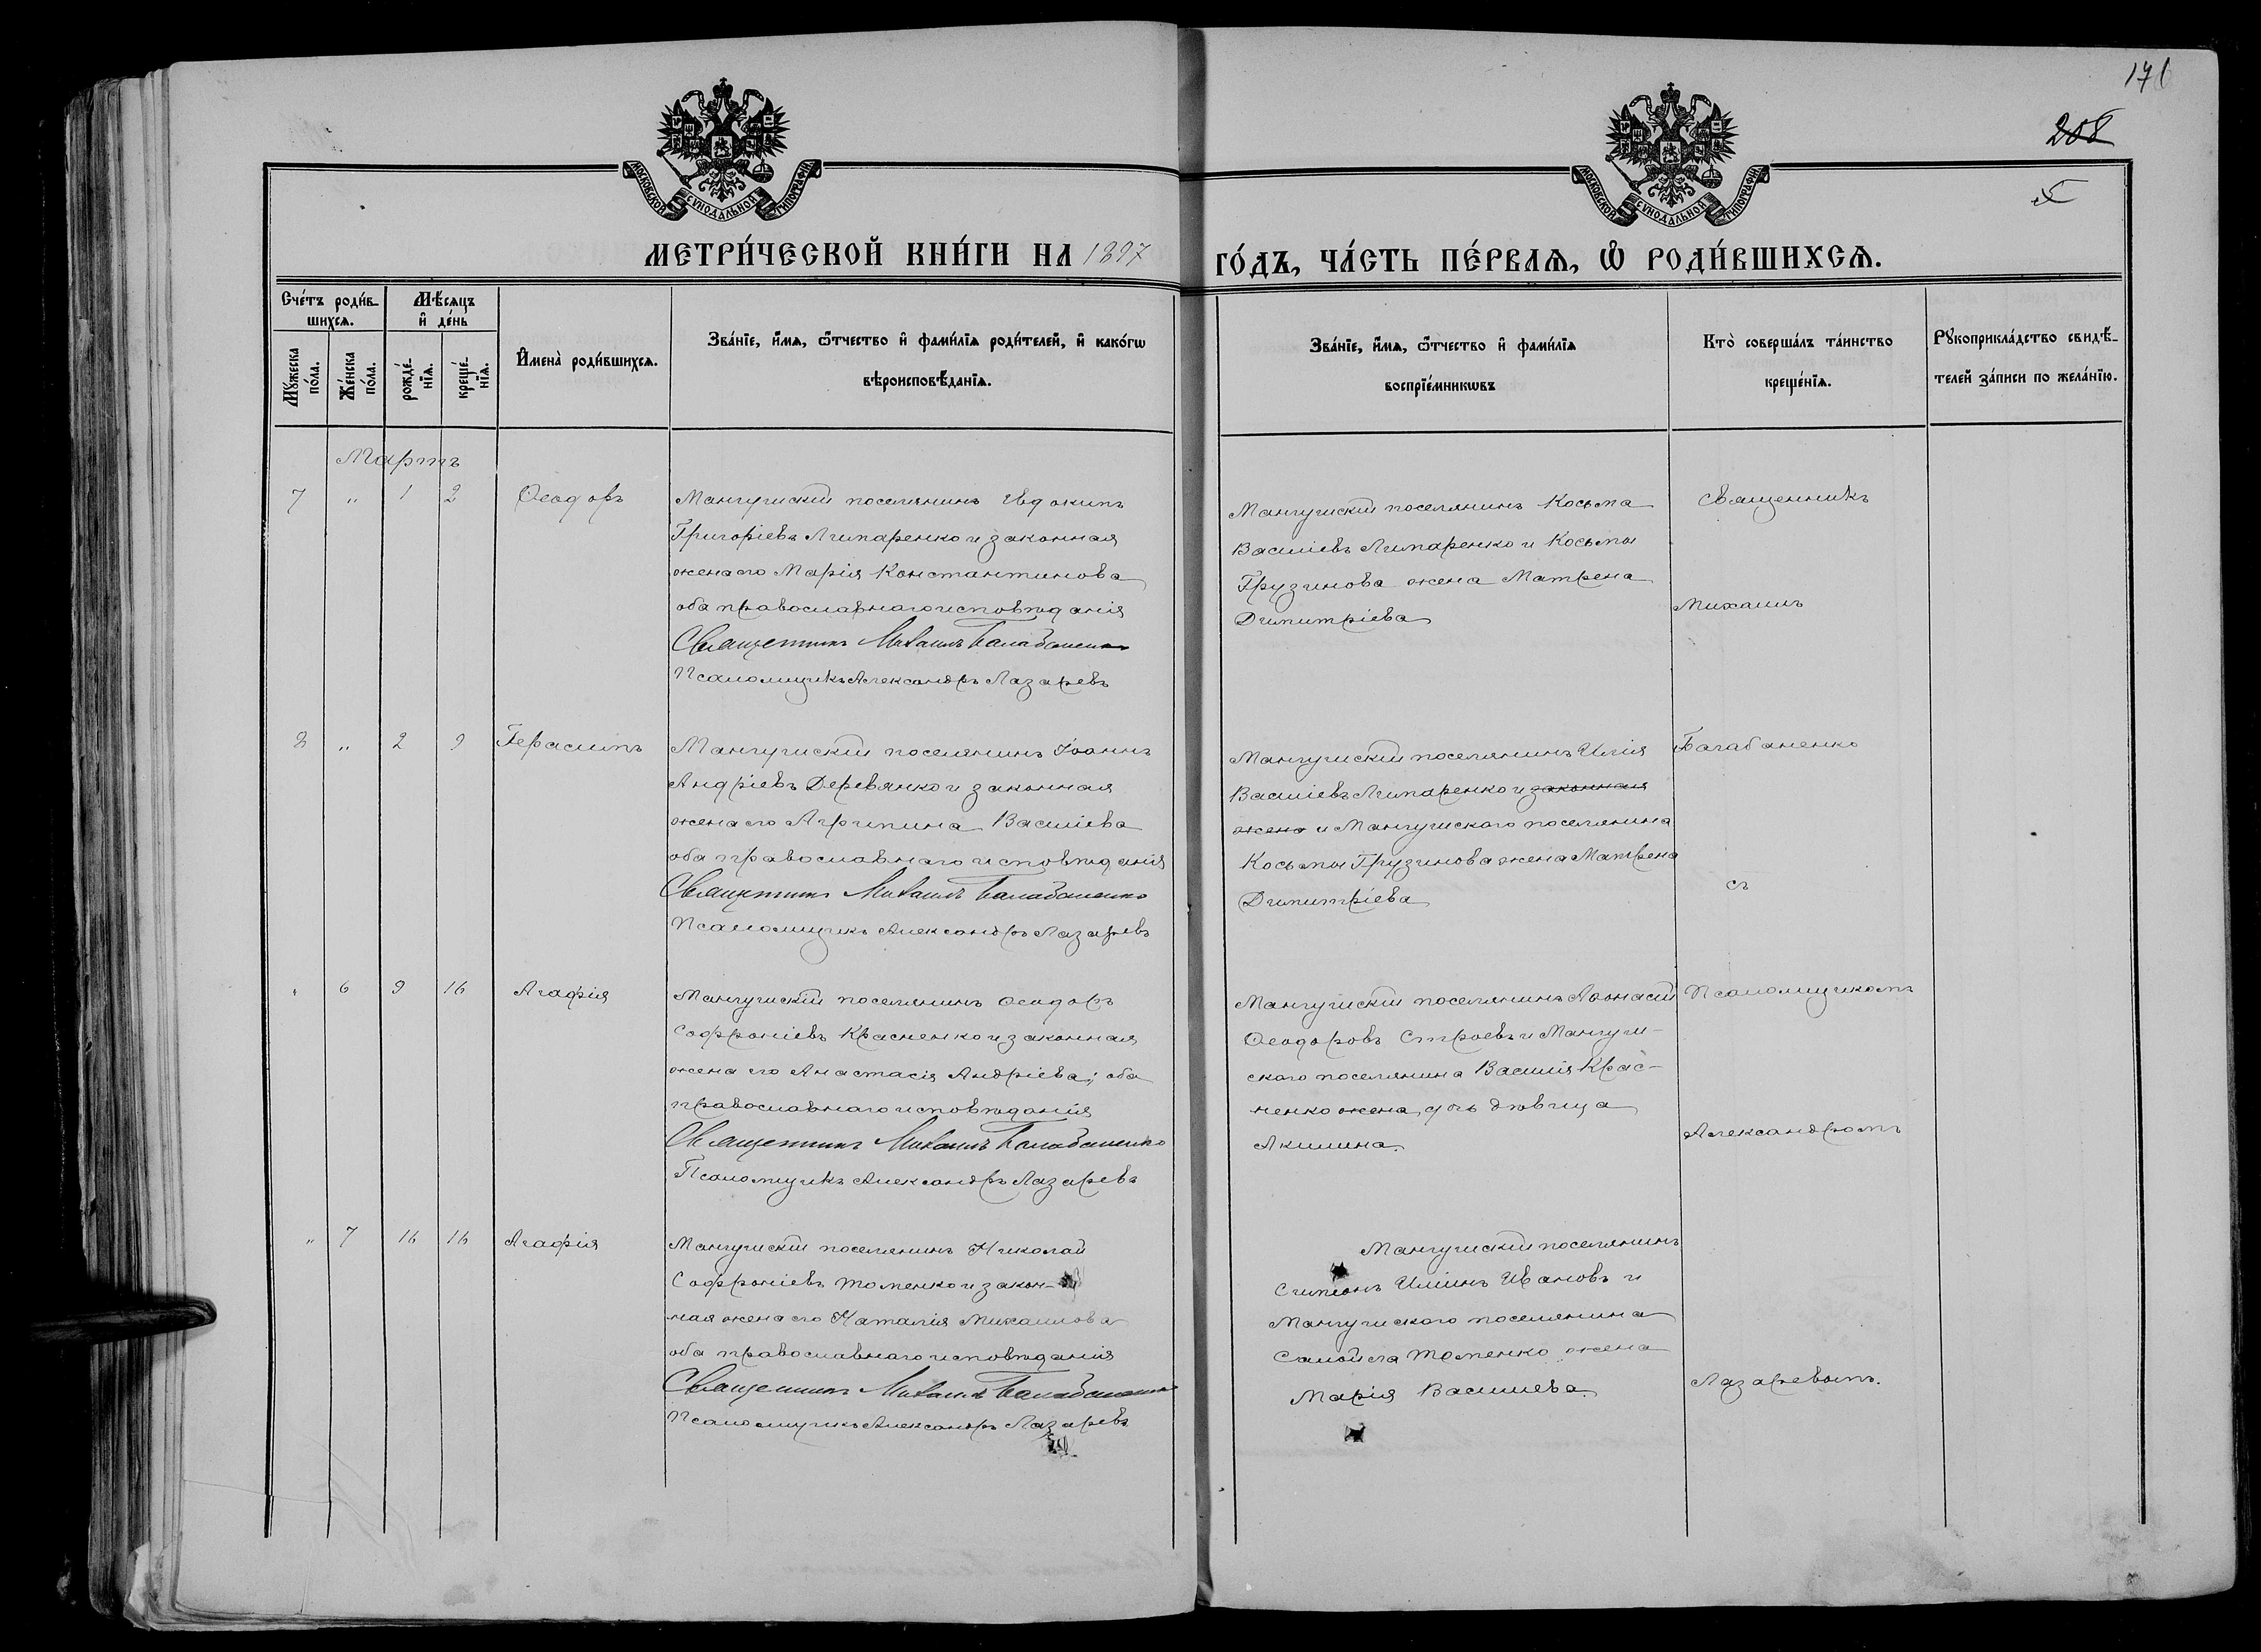 171
208
МОСКОВСКОЙ СУНОДАЛЬНОЙ ТИПОГРАФІИ
МОСКОВСКОЙ СУНОДАЛЬНОЙ ТИПОГРАФІИ
МЕТРИ́ЧЕСКОЙ КНИ́ГИ НА 1897
ГО́ДЪ, ЧА́СТЬ ПЕ́РВАЯ, Ѡ РОДИ́ВШИХСЯ.
Сче́тъ роди́в-
шихся.
Мѣ́сяцъ
и҆ де́нь
Мꙋ́жеска по́ла.
Же́нска по́ла.
рожде́-
нїя.
креще́-
нїя.
И҆мена̀ роди́вшихся.
Зва́нїе, и҆́мя, ѻ҆́тчество и҆ фами́лїя роди́телей, и҆ како́гѡ
вѣроисповѣ́данїя.
Зва́нїе, и҆́мя, ѻ҆́тчество и҆ фами́лїя
воспрїе́мникѡвъ
Кто̀ соверша́лъ та́инство
креще́нїя.
Рꙋкоприкла́дство свидѣ́-
телей за́писи по жела́нїю.
Мартъ
7 " 1 2 Ѳеодоръ
Мангушскій поселянинъ Евдокимъ
Григоріевъ Лимаренко и законная
жена его Марія Константинова
оба православнаго исповѣданія
Священникъ Михаилъ Балабаненко
Псаломщикъ Александръ Лазаревъ
Мангушскій поселянинъ Косьма
Василіевъ Лимаренко и Косьмы
Грузинова жена Матрена
Димитріева
Священникъ
Михаилъ
8 " 2 9 Герасимъ
Мангушскій поселянинъ Іоаннъ
Андріевъ Деревянко и законная
жена его Агрипина Василіева
оба православнаго исповѣданія
Священникъ Михаилъ Балабаненко
Псаломщикъ Александръ Лазаревъ
Мангушскій поселянинъ Илія
Василіевъ Лимаренко и законная
жена и Мангушскаго поселянина
Косьмы Грузинова жена Матрена
Димитріева
Балабаненко
съ
" 6 9 16 Агафія
Мангушскій поселянинъ Ѳеодоръ
Софроніевъ Красненко и законная
жена его Анастасія Андріева; оба
православнаго исповѣданія
Священникъ Михаилъ Балабаненко
Псаломщикъ Александръ Лазаревъ
Мангушскій поселянинъ Аѳонасій
Ѳеодоровъ Строевъ и Мангуш-
скаго поселянина Василія Крас-
ненко жена, дочь дѣвица
Акилина.
Псаломщикомъ
Александромъ
" 7 16 16 Агафія
Мангушскій поселянинъ Николай
Софроніевъ Томенко и закон-
ная жена его Наталія Михаилова
оба православнаго исповѣданія
Священникъ Михаилъ Балабаненко
Псаломщикъ Александръ Лазаревъ
Мангушскій поселянинъ
Симеонъ Иліинъ Ивановъ и
Мангушскаго поселянина
Самойла Томенко жена
Марія Василіева.
Лазаревымъ.